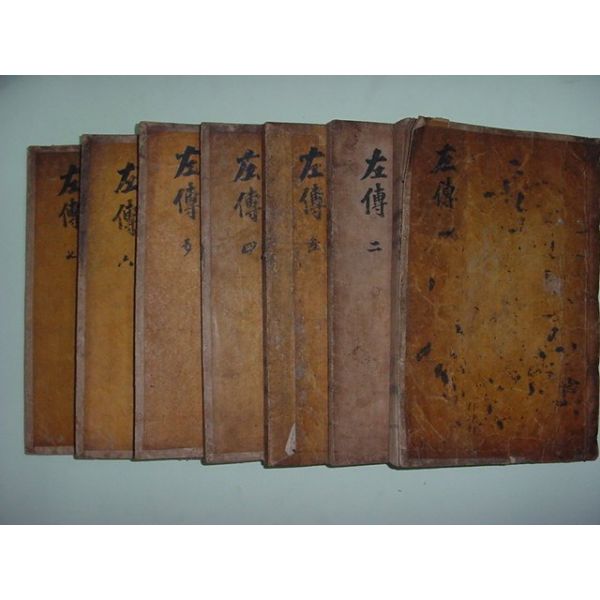 左傳 一
左傳 二
左傳
左傳 四
左傳
左傳 六
左傳 七